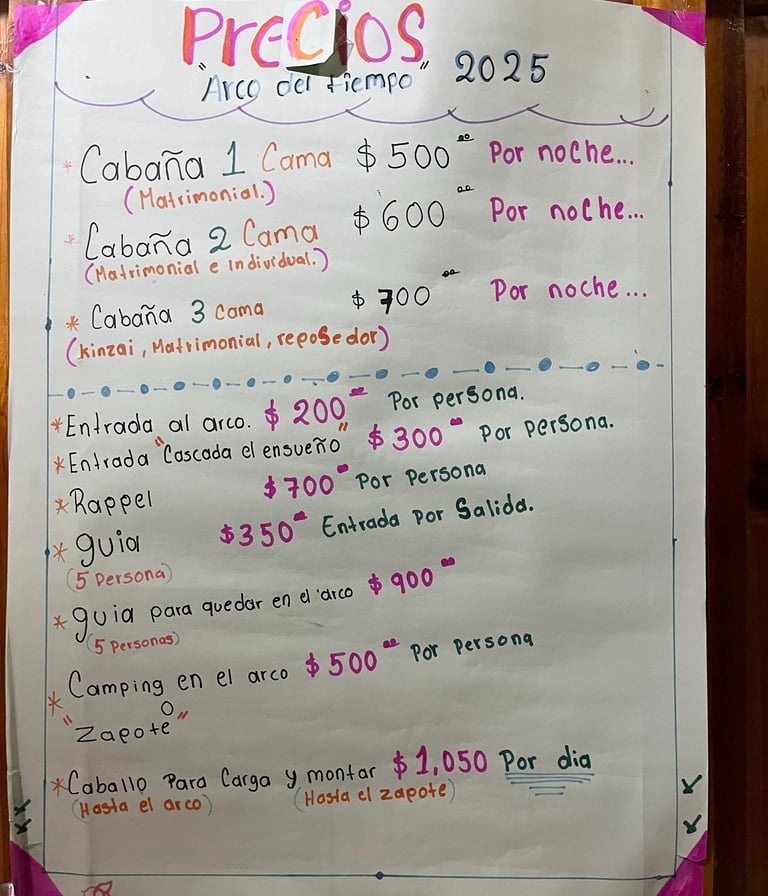 PreCiOS
"Arco del tiempo" 2025
* Cabaña 1 Cama $500.00 Por noche...
(Matrimonial.)
* Cabaña 2 Cama $600.00 Por noche...
(Matrimonial e Individual.)
* Cabaña 3 cama $700.00 Por noche...
(kinzai, Matrimonial, reposedor)
*Entrada al arco. $200.00 Por persona.
*Entrada "Cascada el ensueño" $300.00 Por persona.
*Rappel $700.00 Por Persona
* guia $350.00 Entrada por Salida.
(5 Persona)
* guia para quedar en el arco $900.00
(5 Personas)
* Camping en el arco $500.00 Por Persona
O
"Zapote"
*Caballo Para Carga y montar $1,050 Por dia
(Hasta el arco) (Hasta el zapote)